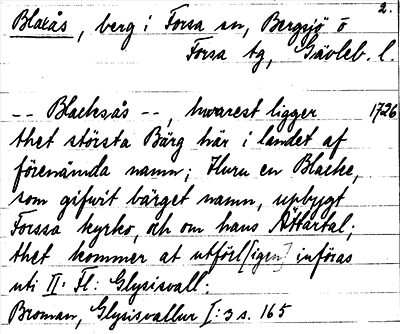 2.
Blaxås, berg i Forsa sn, Bergsjö o
Forsa tg, Gävleb. l.
-- Blacksås --, hwarest ligger 1726
thet största Bärg här i landet af
förenämda namn; Huru en Blacke,
som gifwit bärget namn, upbygt
Forssa kyrko, och om hans Ättartal;
thet kommer at utförl[igen] införas
uti II. Fl: Glysisvall:
Broman, Glysisvallur I: 3 s. 165